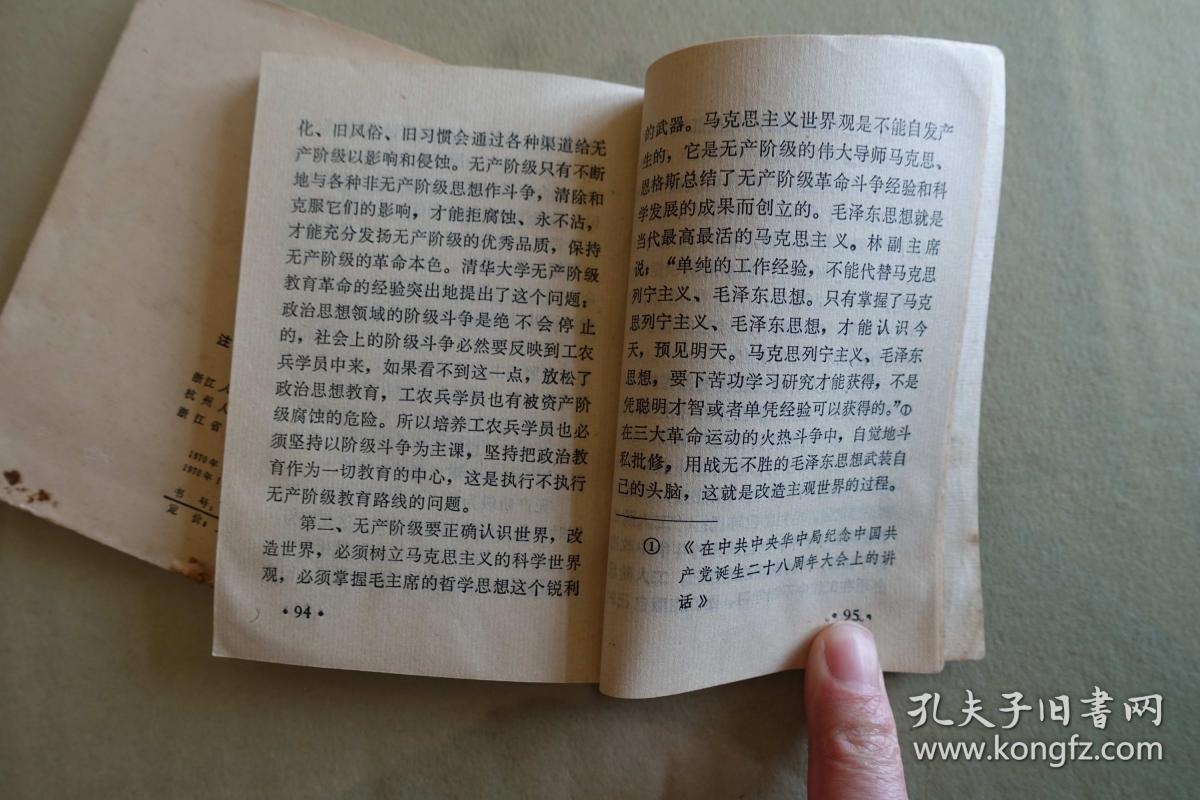 化、旧风俗、旧习惯会通过各种渠道给无
产阶级以影响和侵蚀。无产阶级只有不断
地与各种非无产阶级思想作斗争，清除和
克服它们的影响，才能拒腐蚀、永不沾，
才能充分发扬无产阶级的优秀品质，保持
无产阶级的革命本色。清华大学无产阶级
教育革命的经验突出地提出了这个问题：
政治思想领域的阶级斗争是绝不会停止
的，社会上的阶级斗争必然要反映到工农
兵学员中来，如果看不到这一点，放松了
政治思想教育，工农兵学员也有被资产阶
级腐蚀的危险。所以培养工农兵学员也必
须坚持以阶级斗争为主课，坚持把政治教
育作为一切教育的中心，这是执行不执行
无产阶级教育路线的问题。
第二、无产阶级要正确认识世界，改
造世界，必须树立马克思主义的科学世界
观，必须掌握毛主席的哲学思想这个锐利
·94·
的武器。马克思主义世界观是不能自发产
生的，它是无产阶级的伟大导师马克思、
恩格斯总结了无产阶级革命斗争经验和科
学发展的成果而创立的。毛泽东思想就是
当代最高最活的马克思主义。林副主席
说：“单纯的工作经验，不能代替马克思
列宁主义、毛泽东思想。只有掌握了马克
思列宁主义、毛泽东思想，才能认识今
天，预见明天。马克思列宁主义、毛泽东
思想，要下苦功学习研究才能获得，不是
凭聪明才智或者单凭经验可以获得的。”①
在三大革命运动的火热斗争中，自觉地斗
私批修，用战无不胜的毛泽东思想武装自
己的头脑，这就是改造主观世界的过程。
① 《在中共中央华中局纪念中国共
产党诞生二十八周年大会上的讲
话》
·95·
浙江人
杭州人
浙江省
1970年
1970年1
书号：
定价：
孔夫子旧書网
www.kongfz.com